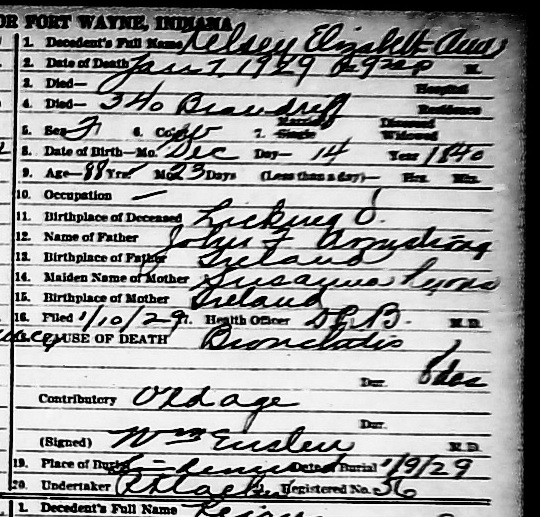 OR FORT WAYNE, INDIANA
1. Decedent's Full Name Kelsey Elizabeth Ann
2. Date of Death Jan 7, 1929 M.
3. Died— Hospital
4. Died— 340 Residence
5. Sex F 6. Color W 7. Married Single Divorced Widowed
8. Date of Birth—Mo. Dec Day— 14 Year 1840
9. Age—88 Yrs. Mo. 23 Days (Less than a day)— Hrs. Min.
10. Occupation —
11. Birthplace of Deceased Licking O.
12. Name of Father John F Armstrong
13. Birthplace of Father Ireland
14. Maiden Name of Mother Susanna Lyons
15. Birthplace of Mother Ireland
16. Filed 1/10/29 17. Health Officer M.D.
CAUSE OF DEATH Bronchitis
Dur. 8 das
Contributory Old age
Dur.
(Signed) Wm M.D.
19. Place of Burial Date of Burial 1/9/29
20. Undertaker Registered No. 56
1. Decedent's Full Name